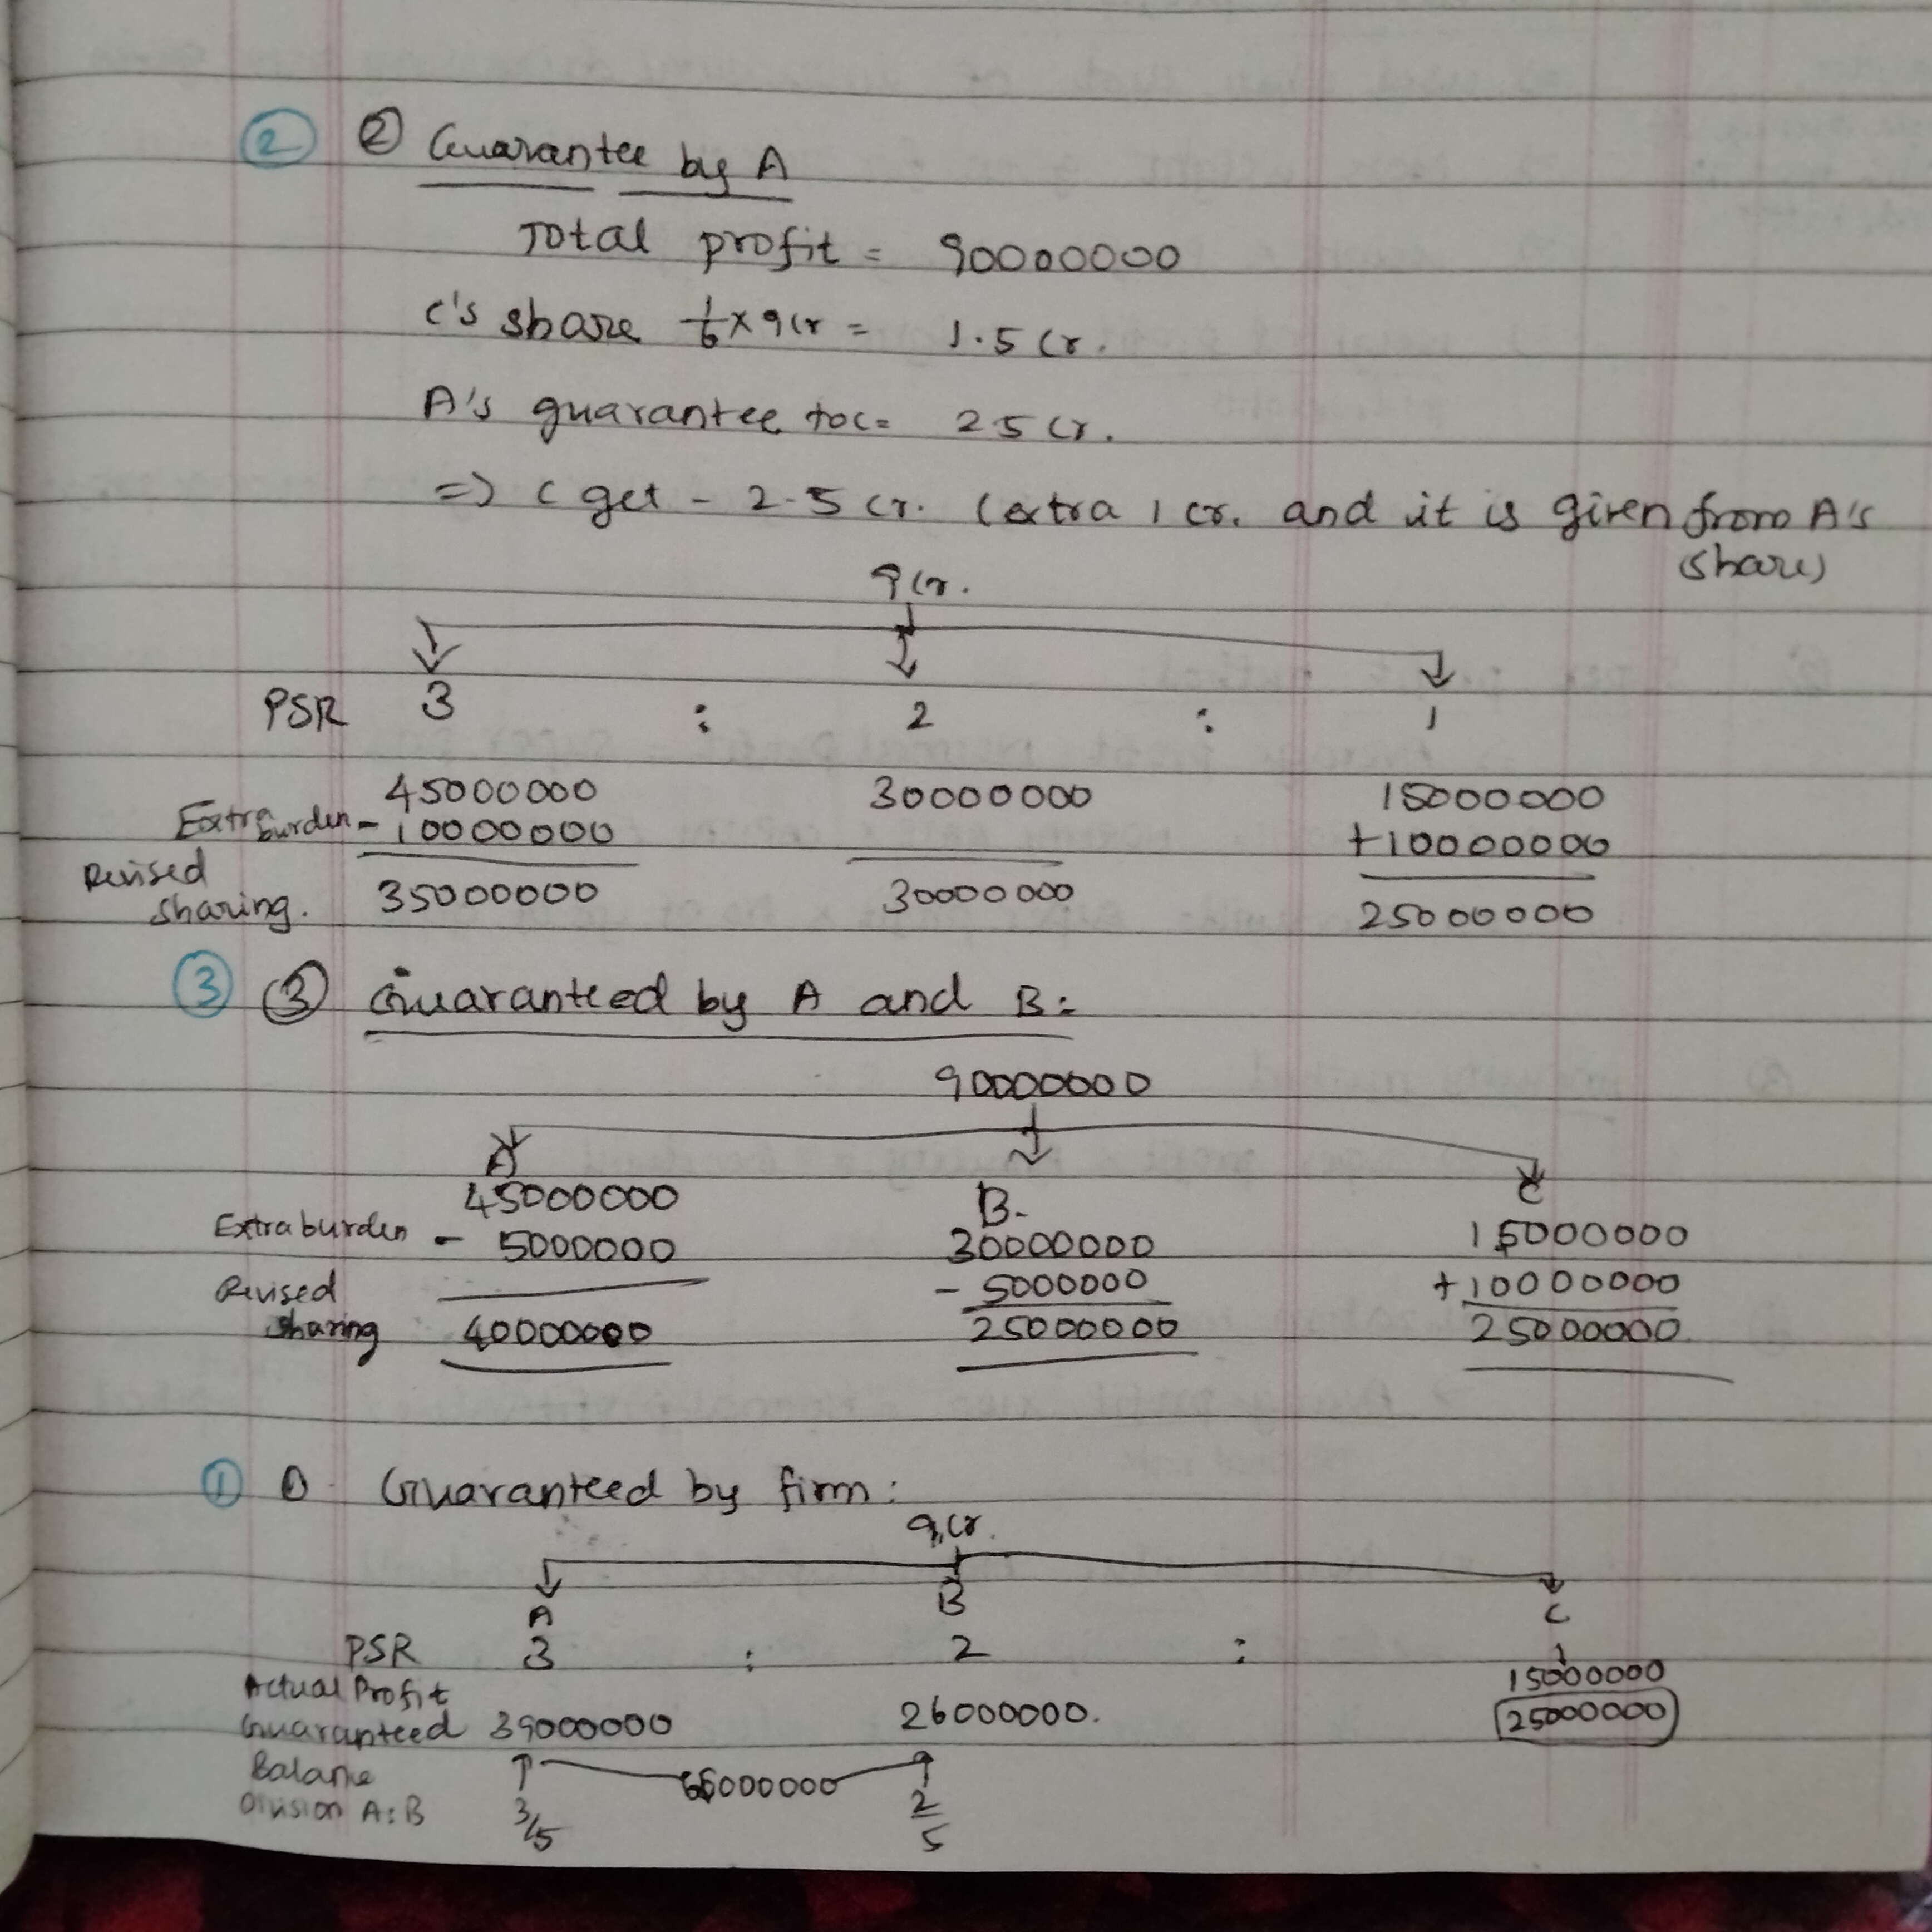 ② ② Guarantee by A
Total profit = 90000000
C's share 1/6 x 9 Cr = 1.5 Cr.
A's guarantee to C = 25 Cr.
=> C get - 2.5 Cr. (extra 1 cr. and it is given from A's
share)
9 Cr.
PSR 3 : 2 : 1
45000000 30000000 15000000
Extra burden - 10000000 +10000000
Revised
sharing. 35000000 30000000 25000000
③ ③ Guaranteed by A and B:
90000000
A
45000000 B. C
Extra burden - 5000000 30000000 15000000
Revised - 5000000 +10000000
sharing 40000000 25000000 25000000
① ① Guaranteed by firm:
9 Cr.
A B C
PSR 3 : 2 : 1
Actual Profit 15000000
Guaranteed 39000000 26000000. 25000000
Balance 65000000
Division A:B 3/5 2/5